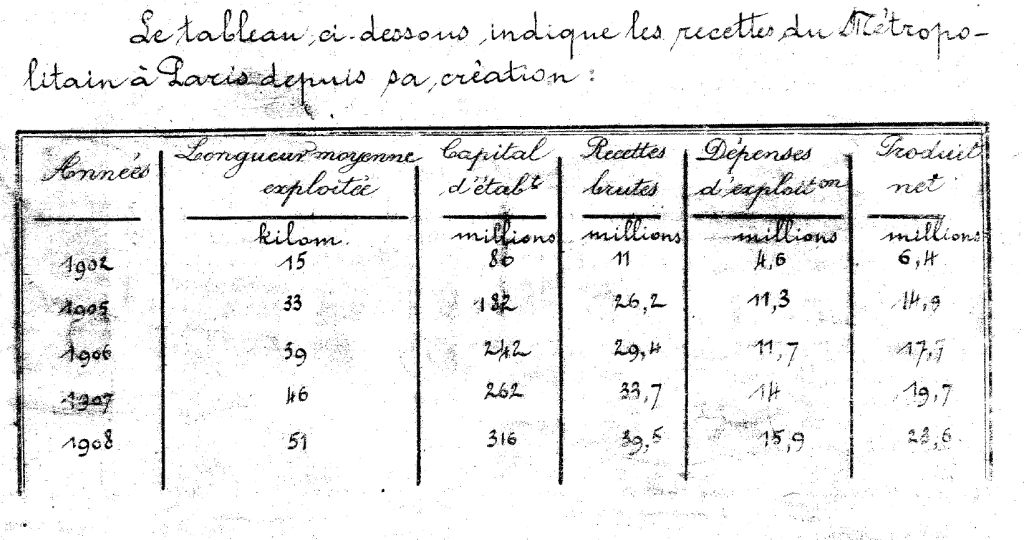 Le tableau ci-dessous indique les recettes du Métropo-
litain à Paris depuis sa création :
Années Longueur moyenne exploitée Capital d'étabt Recettes brutes Dépenses d'exploiton Produit net
kilom. millions millions millions millions
1902 15 80 11 4,6 6,4
1905 33 182 26,2 11,3 14,9
1906 39 242 29,4 11,7 17,7
1907 46 262 33,7 14 19,7
1908 51 316 39,5 15,9 23,6